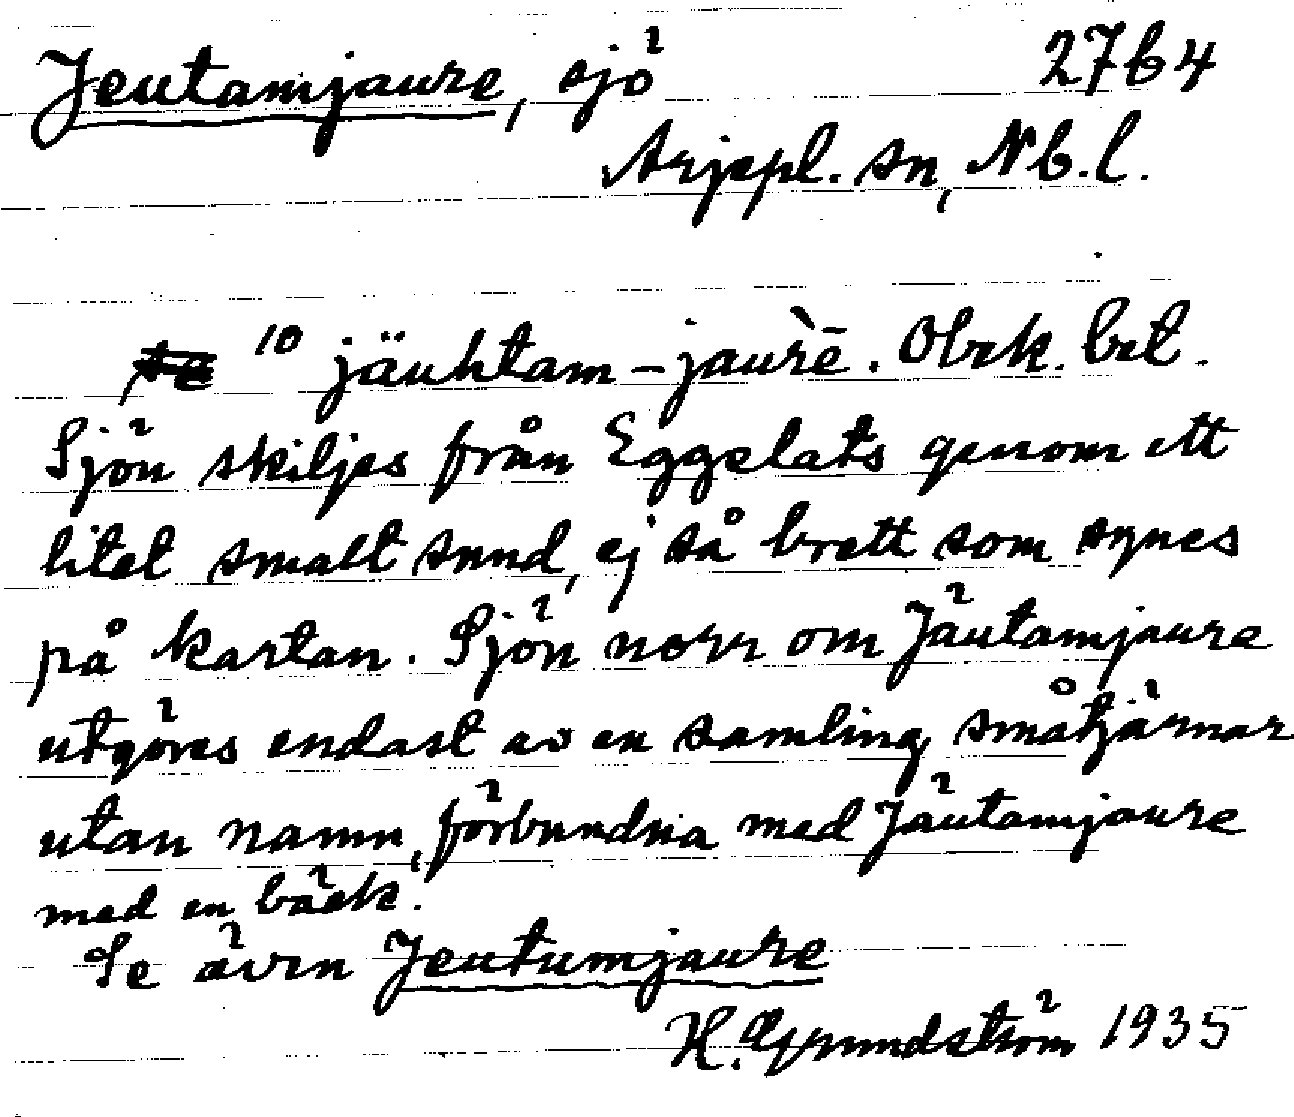 Jeutamjaure, sjö 2764
Arjepl. sn, Nb.l.
10 jäuhtam-jaurḕ. Obek. bet.
Sjön skiljes från Eggelats genom ett
litet smalt sund, ej så brett som synes
på kartan. Sjön norr om Jäutamjaure
utgöres endast av en samling småtjärnar
utan namn, förbundna med Jäutamjaure
med en bäck.
Se även Jeutumjaure
H. Grundström 1935